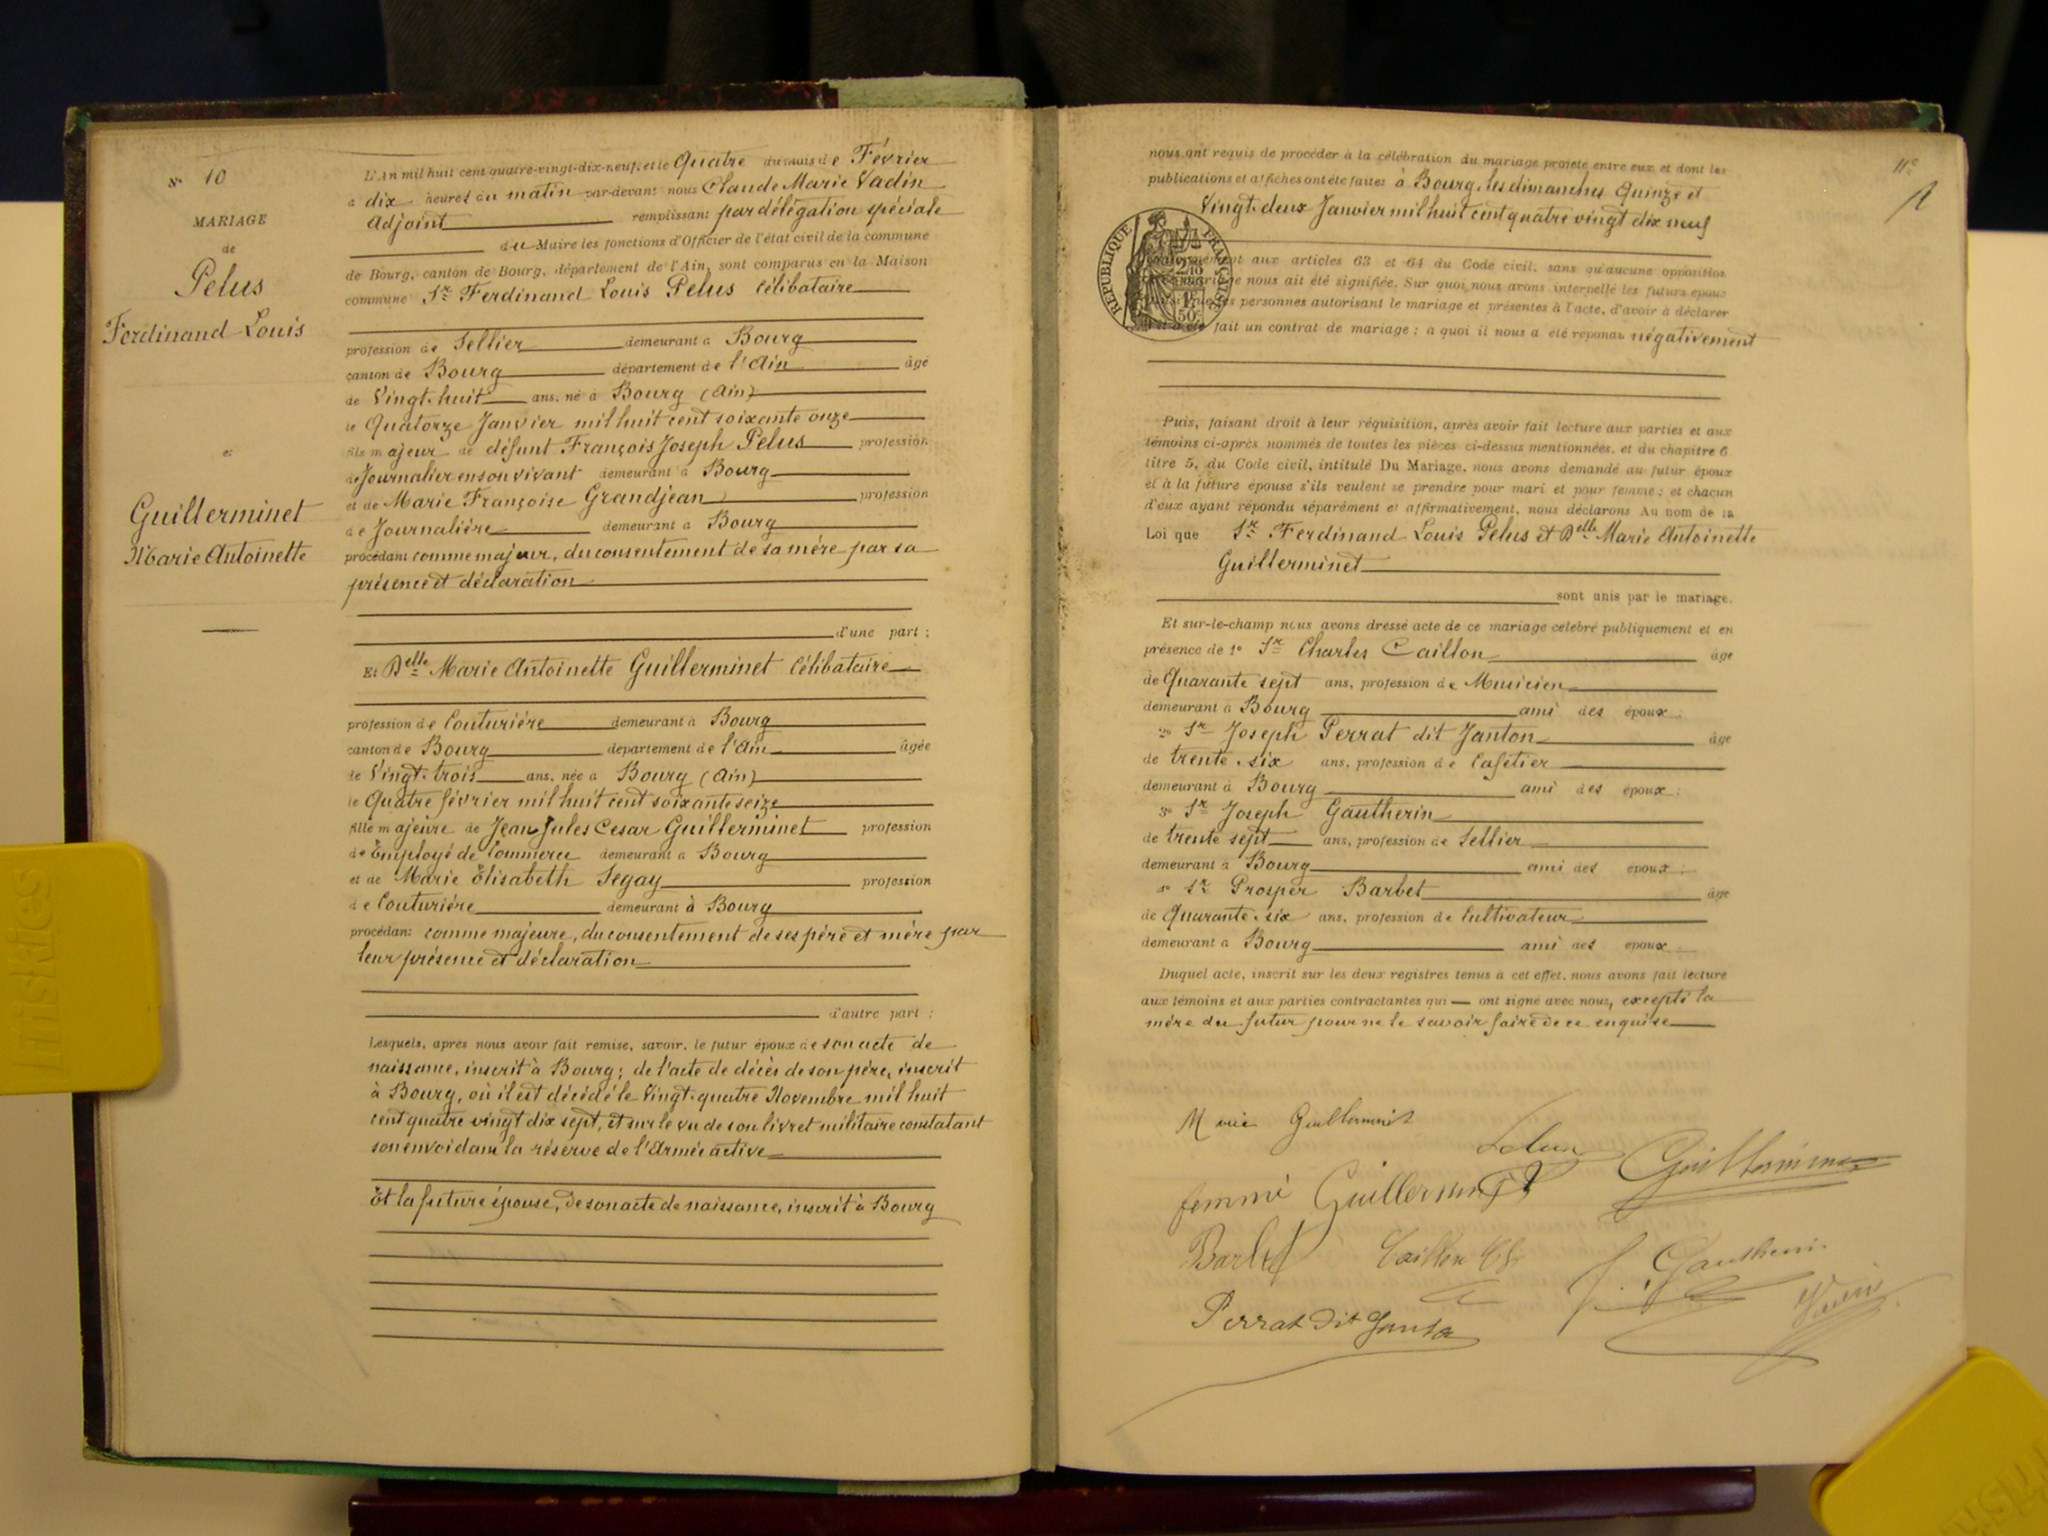 N° 10
MARIAGE
de
Pelus
Ferdinand Louis
et
Guillerminet
Marie Antoinette
L'An mil huit cent quatre-vingt-dix-neuf, et le Quatre du mois de Février
à dix heures du matin par-devant nous Claude Marie Vadin
Adjoint remplissant par délégation spéciale
du Maire les fonctions d'Officier de l'état civil de la commune
de Bourg, canton de Bourg, département de l'Ain, sont comparus en la Maison
commune Sr Ferdinand Louis Pelus Célibataire
profession de Sellier demeurant à Bourg
canton de Bourg département de l'Ain âgé
de Vingt-huit ans, né à Bourg (Ain)
le Quatorze Janvier mil huit cent soixante onze
fils majeur de défunt François Joseph Pelus profession
de Journalier en son vivant demeurant à Bourg
et de Marie Françoise Grandjean profession
de Journalière demeurant à Bourg
procédant comme majeur, du consentement de sa mère par sa
présence et déclaration
d'une part ;
Et Delle Marie Antoinette Guillerminet Célibataire
profession de Couturière demeurant à Bourg
canton de Bourg département de l'Ain âgée
de Vingt-trois ans, née à Bourg (Ain)
le Quatre février mil huit cent soixante seize
fille majeure de Jean Jules Cesar Guillerminet profession
de Employé de Commerce demeurant à Bourg
et de Marie Elisabeth Segay profession
de Couturière demeurant à Bourg
procédant comme majeure, du consentement de ses père et mère par
leur présence et déclaration
d'autre part ;
Lesquels, après nous avoir fait remise, savoir, le futur époux de son acte de
naissance, inscrit à Bourg ; de l'acte de décès de son père, inscrit
à Bourg, où il est décédé le Vingt-quatre Novembre mil huit
cent quatre vingt dix sept, et sur le vu de son livret militaire constatant
son envoi dans la réserve de l'Armée active
Et la future épouse, de son acte de naissance, inscrit à Bourg
11e
nous ont requis de procéder à la célébration du mariage projeté entre eux et dont les
publications et affiches ont été faites à Bourg, les dimanches Quinze et
Vingt-deux Janvier mil huit cent quatre vingt dix neuf
REPUBLIQUE FRANÇAISE
2/10
1f
50c
aux articles 63 et 64 du Code civil, sans qu'aucune opposition
mariage nous ait été signifiée. Sur quoi, nous avons interpellé les futurs époux
les personnes autorisant le mariage et présentes à l'acte, d'avoir à déclarer
fait un contrat de mariage ; à quoi il nous a été répondu négativement
Puis, faisant droit à leur réquisition, après avoir fait lecture aux parties et aux
témoins ci-après nommés de toutes les pièces ci-dessus mentionnées, et du chapitre 6
titre 5, du Code civil, intitulé Du Mariage, nous avons demandé au futur époux
et à la future épouse s'ils veulent se prendre pour mari et pour femme ; et chacun
d'eux ayant répondu séparément et affirmativement, nous déclarons Au nom de la
Loi que Sr Ferdinand Louis Pelus et Delle Marie Antoinette
Guillerminet
sont unis par le mariage.
Et sur-le-champ nous avons dressé acte de ce mariage célébré publiquement et en
présence de 1° Sr Charles Caillon âgé
de Quarante sept ans, profession de Musicien
demeurant à Bourg ami des époux ;
2° Sr Joseph Perrat dit Janton âgé
de trente-six ans, profession de Cafetier
demeurant à Bourg ami des époux ;
3° Sr Joseph Gautherin
de trente sept ans, profession de Sellier
demeurant à Bourg ami des époux ;
4° Sr Prosper Barbet âgé
de Quarante-six ans, profession de Cultivateur
demeurant à Bourg ami des époux ;
Duquel acte, inscrit sur les deux registres tenus à cet effet, nous avons fait lecture
aux témoins et aux parties contractantes qui ont signé avec nous, excepté la
mère du futur pour ne le savoir faire de ce enquise
Marie Guillerminet
femme Guillerminet
Barbet Caillon
J. Gautherin
Perrat dit Janton